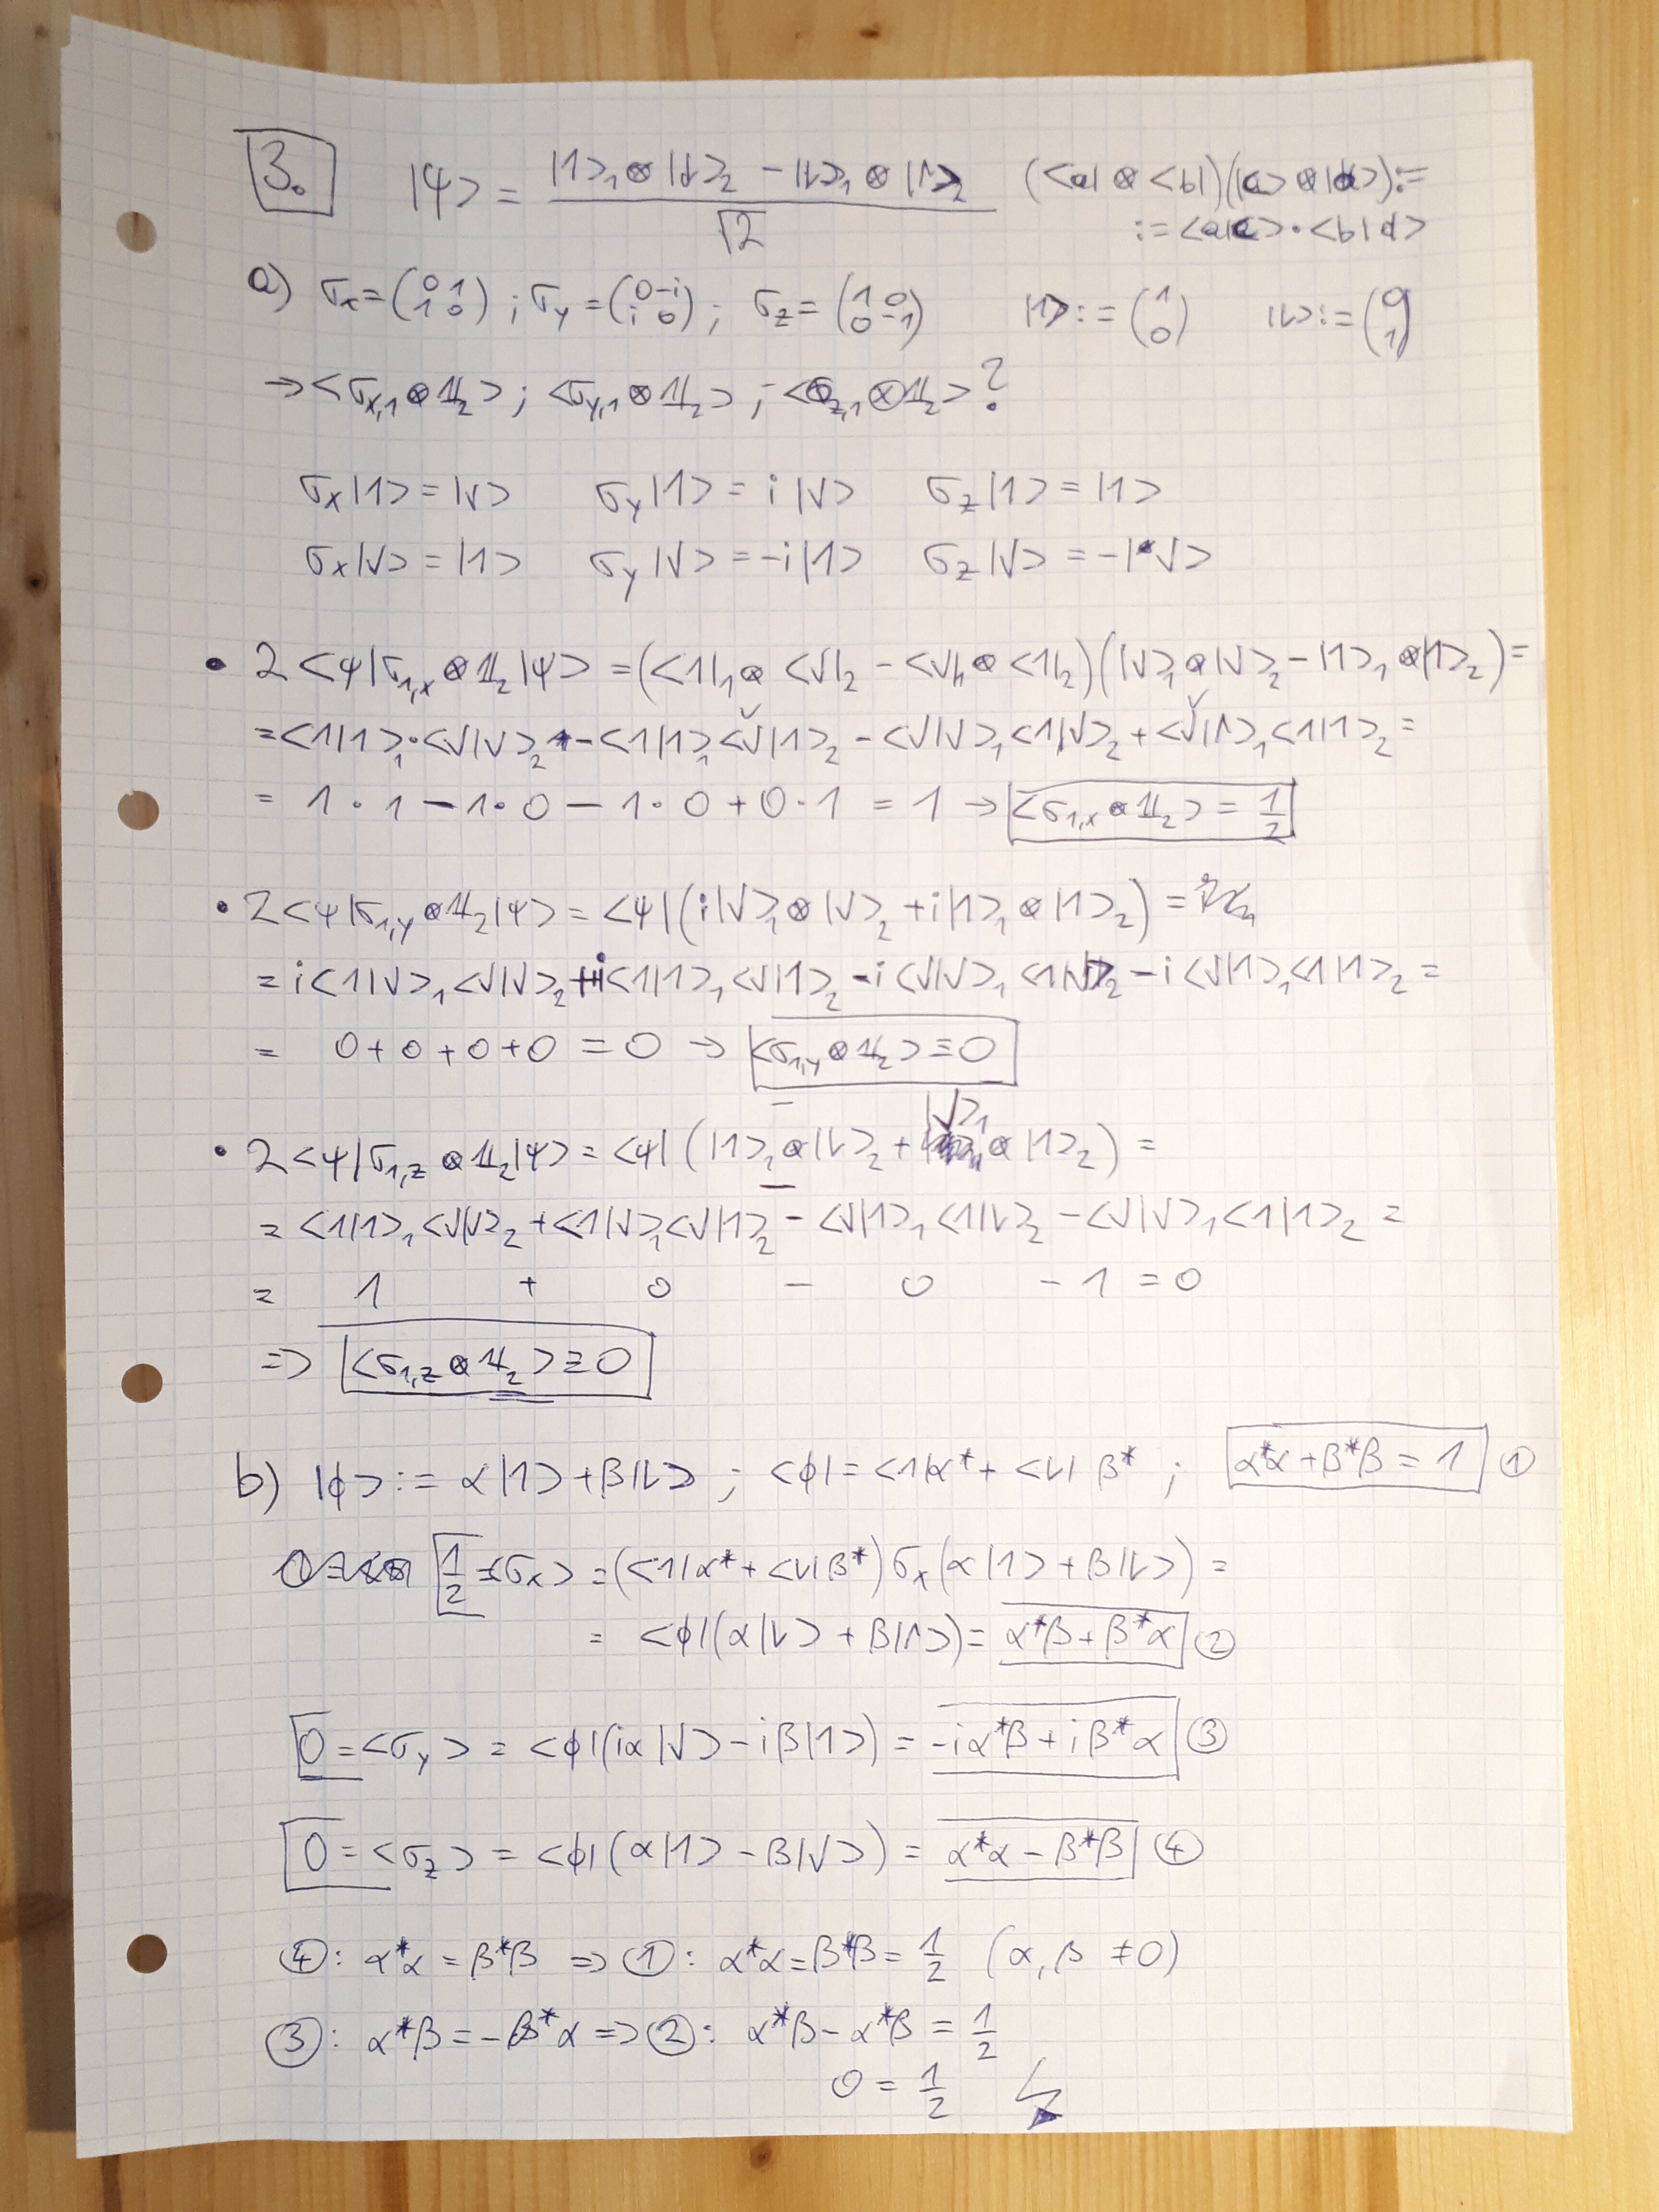 3. |ψ> = (|1>₁ ⊗ |↓>₂ − |↓>₁ ⊗ |1>₂)/√2 (<a| ⊗ <b|)(|c> ⊗ |d>) :=
:= <a|c>·<b|d>
a) σₓ = (0 1; 1 0) ; σ_y = (0 −i; i 0) ; σ_z = (1 0; 0 −1) |1> := (1; 0) |↓> := (0; 1)
→ <σ_{x,1} ⊗ 𝟙₂> ; <σ_{y,1} ⊗ 𝟙₂> ; <σ_{z,1} ⊗ 𝟙₂> ?
σₓ|1> = |↓> σ_y|1> = i|↓> σ_z|1> = |1>
σₓ|↓> = |1> σ_y|↓> = −i|1> σ_z|↓> = −|↓>
• 2<ψ|σ_{1,x} ⊗ 𝟙₂|ψ> = (<1|₁ ⊗ <↓|₂ − <↓|₁ ⊗ <1|₂)(|↓>₁ ⊗ |↓>₂ − |1>₁ ⊗ |1>₂) =
= <1|1>₁·<↓|↓>₂ − <1|1>₁<↓|1>₂ − <↓|↓>₁<1|↓>₂ + <↓|1>₁<1|1>₂ =
= 1·1 − 1·0 − 1·0 + 0·1 = 1 → <σ_{1,x} ⊗ 𝟙₂> = 1/2
• 2<ψ|σ_{1,y} ⊗ 𝟙₂|ψ> = <ψ|(i|↓>₁ ⊗ |↓>₂ + i|1>₁ ⊗ |1>₂) =
= i<1|↓>₁<↓|↓>₂ + i<1|1>₁<↓|1>₂ − i<↓|↓>₁<1|↓>₂ − i<↓|1>₁<1|1>₂ =
= 0 + 0 + 0 + 0 = 0 → <σ_{1,y} ⊗ 𝟙₂> = 0
• 2<ψ|σ_{1,z} ⊗ 𝟙₂|ψ> = <ψ|(|1>₁ ⊗ |↓>₂ + |↓>₁ ⊗ |1>₂) =
= <1|1>₁<↓|↓>₂ + <1|↓>₁<↓|1>₂ − <↓|1>₁<1|↓>₂ − <↓|↓>₁<1|1>₂ =
= 1 + 0 − 0 − 1 = 0
=> <σ_{1,z} ⊗ 𝟙₂> = 0
b) |ϕ> := α|1> + β|↓> ; <ϕ| = <1|α* + <↓|β* ; α*α + β*β = 1 ①
1/2 = <σₓ> = (<1|α* + <↓|β*)σₓ(α|1> + β|↓>) =
= <ϕ|(α|↓> + β|1>) = α*β + β*α ②
0 = <σ_y> = <ϕ|(iα|↓> − iβ|1>) = −iα*β + iβ*α ③
0 = <σ_z> = <ϕ|(α|1> − β|↓>) = α*α − β*β ④
④: α*α = β*β => ①: α*α = β*β = 1/2 (α, β ≠ 0)
③: α*β = −β*α => ②: α*β − α*β = 1/2
0 = 1/2 ↯